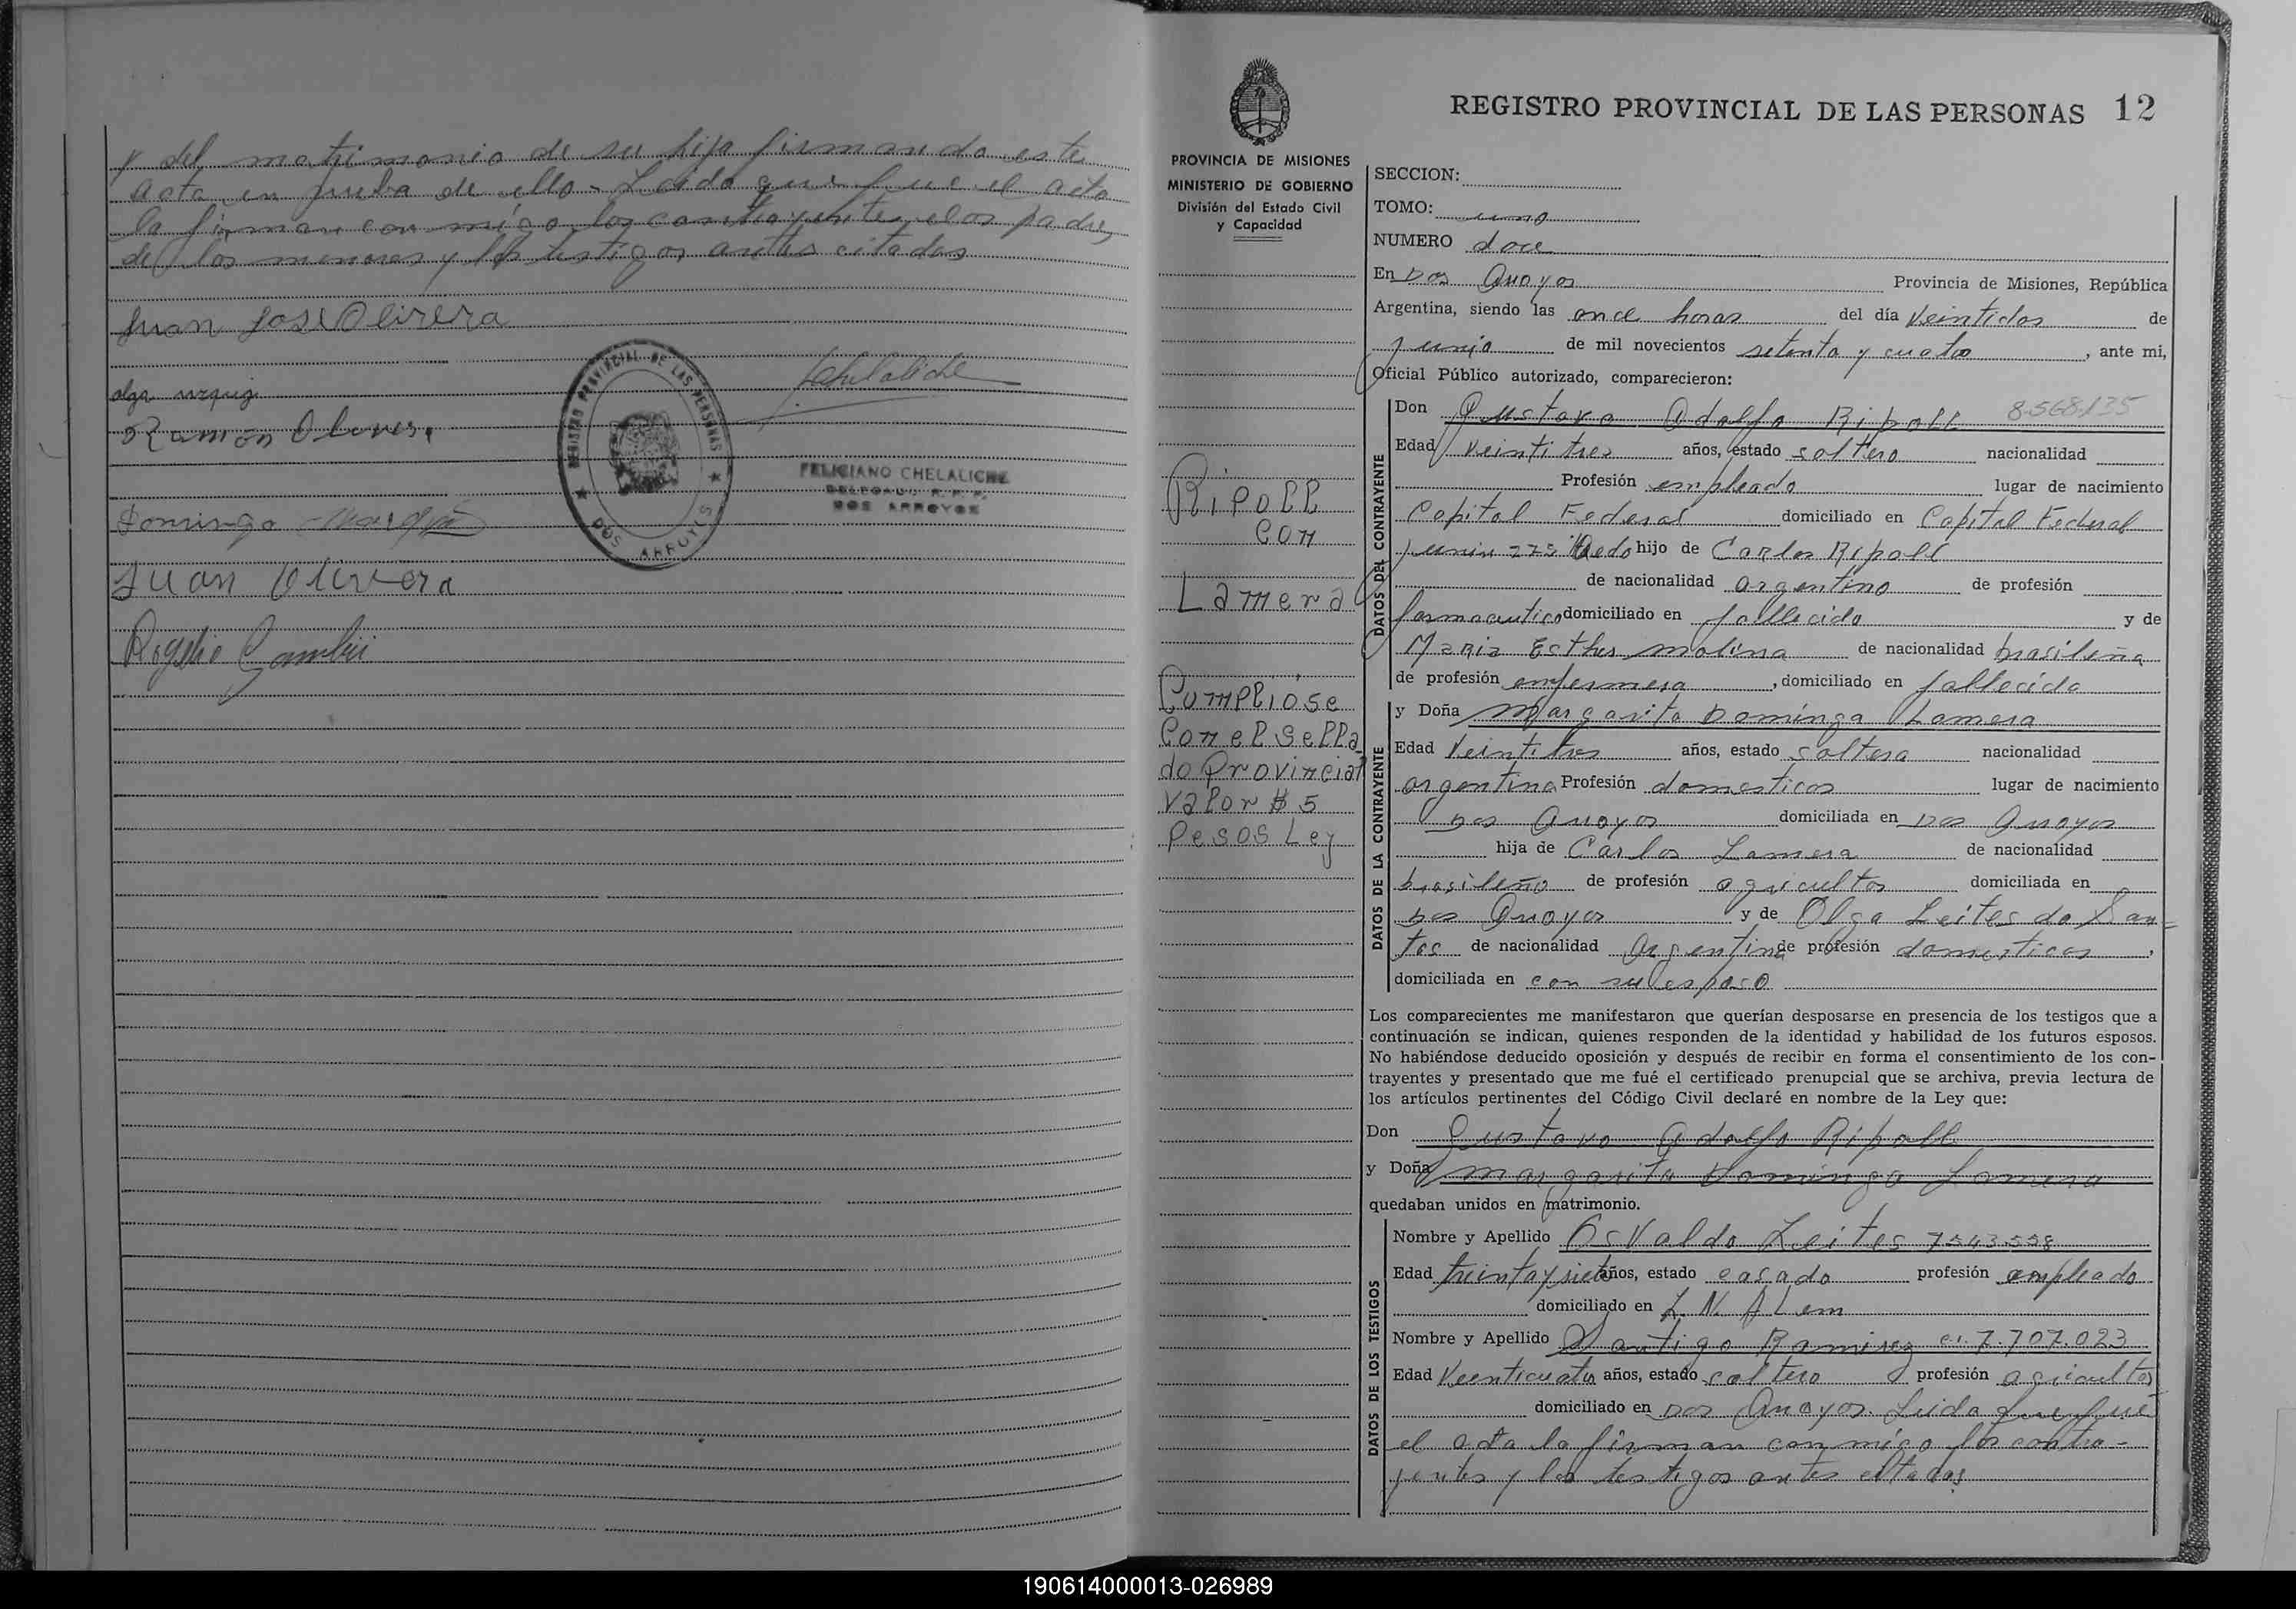 y del matrimonio de su hijo firmando este
acta en prueba de ello - Leido que fue el acta
la firman con migo los contrayentes, los padres
de los menores y los testigos antes citados
Juan Jose Olivera
olga urquiz
Ramon Oliver
Domingo
Juan Olivera
Rogelio
REGISTRO PROVINCIAL DE LAS PERSONAS
DOS ARROYOS
FELICIANO CHELALICHE
DELEGADO R. P. P.
DOS ARROYOS
REGISTRO PROVINCIAL DE LAS PERSONAS 12
PROVINCIA DE MISIONES
MINISTERIO DE GOBIERNO
División del Estado Civil
y Capacidad
Ripoll
con
Lamera
Cumpliose
con el sella
do Provincial
valor $ 5
Pesos Ley
SECCION:
TOMO: uno
NUMERO doce
En Dos Arroyos Provincia de Misiones, República
Argentina, siendo las once horas del día Veintidos de
junio de mil novecientos setenta y cuatro, ante mi,
Oficial Público autorizado, comparecieron:
DATOS DEL CONTRAYENTE
Don Gustavo Adolfo Ripoll 8.568.135
Edad Veintitres años, estado soltero nacionalidad
Profesión empleado lugar de nacimiento
Capital Federal domiciliado en Capital Federal
Junin 275 hijo de Carlos Ripoll
de nacionalidad argentino de profesión
farmaceutico domiciliado en fallecido y de
Maria Esther Molina de nacionalidad brasileña
de profesión enfermera, domiciliado en fallecida
DATOS DE LA CONTRAYENTE
y Doña Margarita Dominga Lamera
Edad Veintitres años, estado soltera nacionalidad
argentina Profesión domesticos lugar de nacimiento
Dos Arroyos domiciliada en Dos Arroyos
hija de Carlos Lamera de nacionalidad
brasileño de profesión agricultor domiciliada en
Dos Arroyos y de Olga Leites do San=
tos de nacionalidad Argentina de profesión domesticos,
domiciliada en con su esposo
Los comparecientes me manifestaron que querían desposarse en presencia de los testigos que a
continuación se indican, quienes responden de la identidad y habilidad de los futuros esposos.
No habiéndose deducido oposición y después de recibir en forma el consentimiento de los con-
trayentes y presentado que me fué el certificado prenupcial que se archiva, previa lectura de
los artículos pertinentes del Código Civil declaré en nombre de la Ley que:
Don Gustavo Adolfo Ripoll
y Doña Margarita Dominga Lamera
quedaban unidos en matrimonio.
DATOS DE LOS TESTIGOS
Nombre y Apellido Osvaldo Leites 7543.558
Edad treinta y siete años, estado casado profesión empleado
domiciliado en L. N. Alem
Nombre y Apellido Santigo Ramirez c.i. 7.707.023
Edad Veenticuatro años, estado soltero profesión agricultor
domiciliado en Dos Arroyos. Leida que fué
el acta la firman con migo los contra-
yentes y los testigos antes citados
190614000013-026989